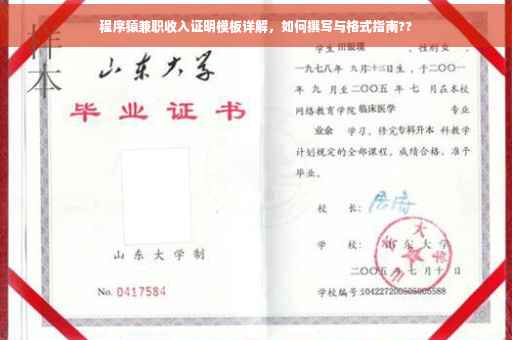 程序猿兼职收入证明模板详解，如何撰写与格式指南??
样本
山东大学
毕业证书
山东大学制
No. 0417584
学生
性别女，
一九七八年 九月十三日生，于二〇〇一
年 九 月至二〇〇五 年 七 月在本校
网络教育学院 临床医学 专业
业余 学习，修完专科升本 科教学
计划规定的全部课程，成绩合格，准予
毕业。
校 长：
学 校： 山东大学
二〇〇五 年 七 月 十 日
学校编号：